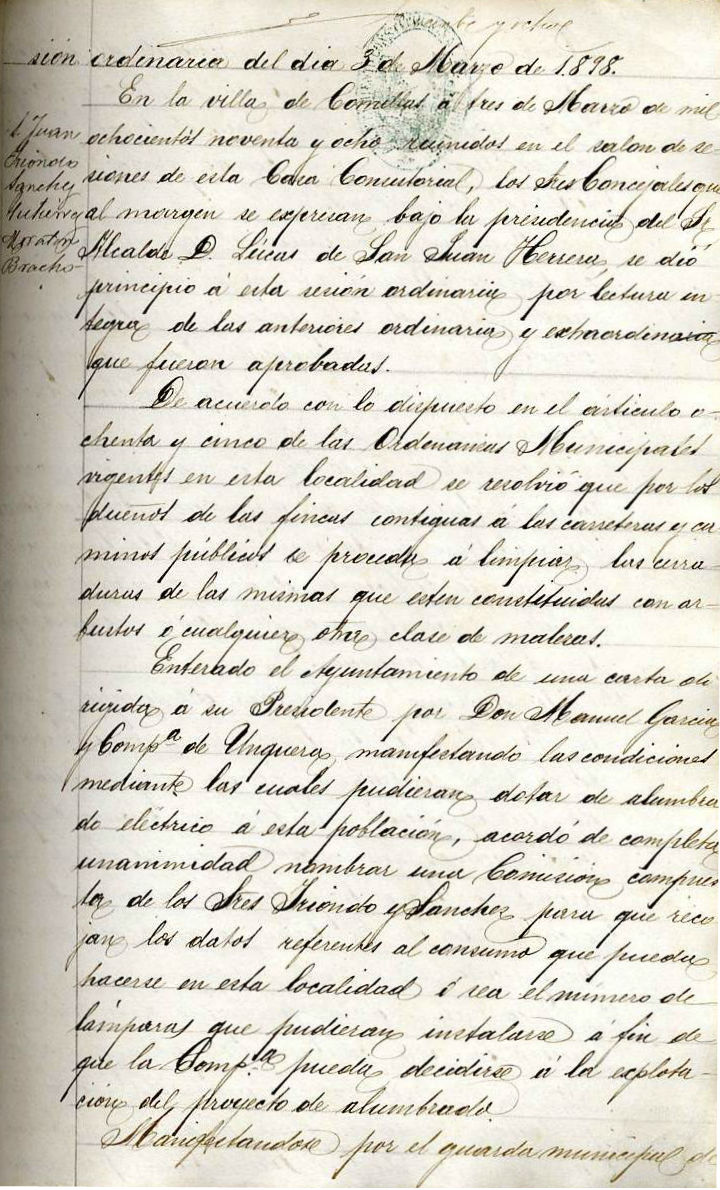 y ocho
sión ordinaria del dia 3 de Marzo de 1.898.
En la villa de Comillas á tres de Marzo de mil
ochocientos noventa y ocho reunidos en el salon de se-
siones de esta Casa Consistorial, los Sres Concejales que
al margen se expresan bajo la presidencia del Sr
Alcalde D. Lúcas de San Juan Herrera, se dió
principio á esta sesión ordinaria por lectura in
tegra de las anteriores ordinaria y extraordinaria
que fueron aprobadas.
S. Juan
Yriondo
Sanchez
Gutierrez
Moratin
Bracho
De acuerdo con lo dispuesto en el artículo o-
chenta y cinco de las Ordenanzas Municipales
vigentes en esta localidad se resolvió que por los
dueños de las fincas contiguas á las carreteras y ca
minos públicos se proceda á limpiar las cerra-
duras de las mismas que esten constituidas con ar-
bustos ó cualquier otra clase de malezas.
Enterado el Ayuntamiento de una carta di
rigida á su Presidente por Don Manuel Garcia
y Comp.ª de Unquera, manifestando las condiciones
mediante las cuales pudieran dotar de alumbra
do eléctrico á esta población, acordó de completa
unanimidad nombrar una Comisión compues
ta de los Sres Yriondo y Sanchez para que reco
jan los datos referentes al consumo que pueda
hacerse en esta localidad ó sea el número de
lámparas que pudieran instalarse á fin de
que la Comp.ª pueda decidirse á la explota-
ción del proyecto de alumbrado.
Manifestandose por el guarda municipal de